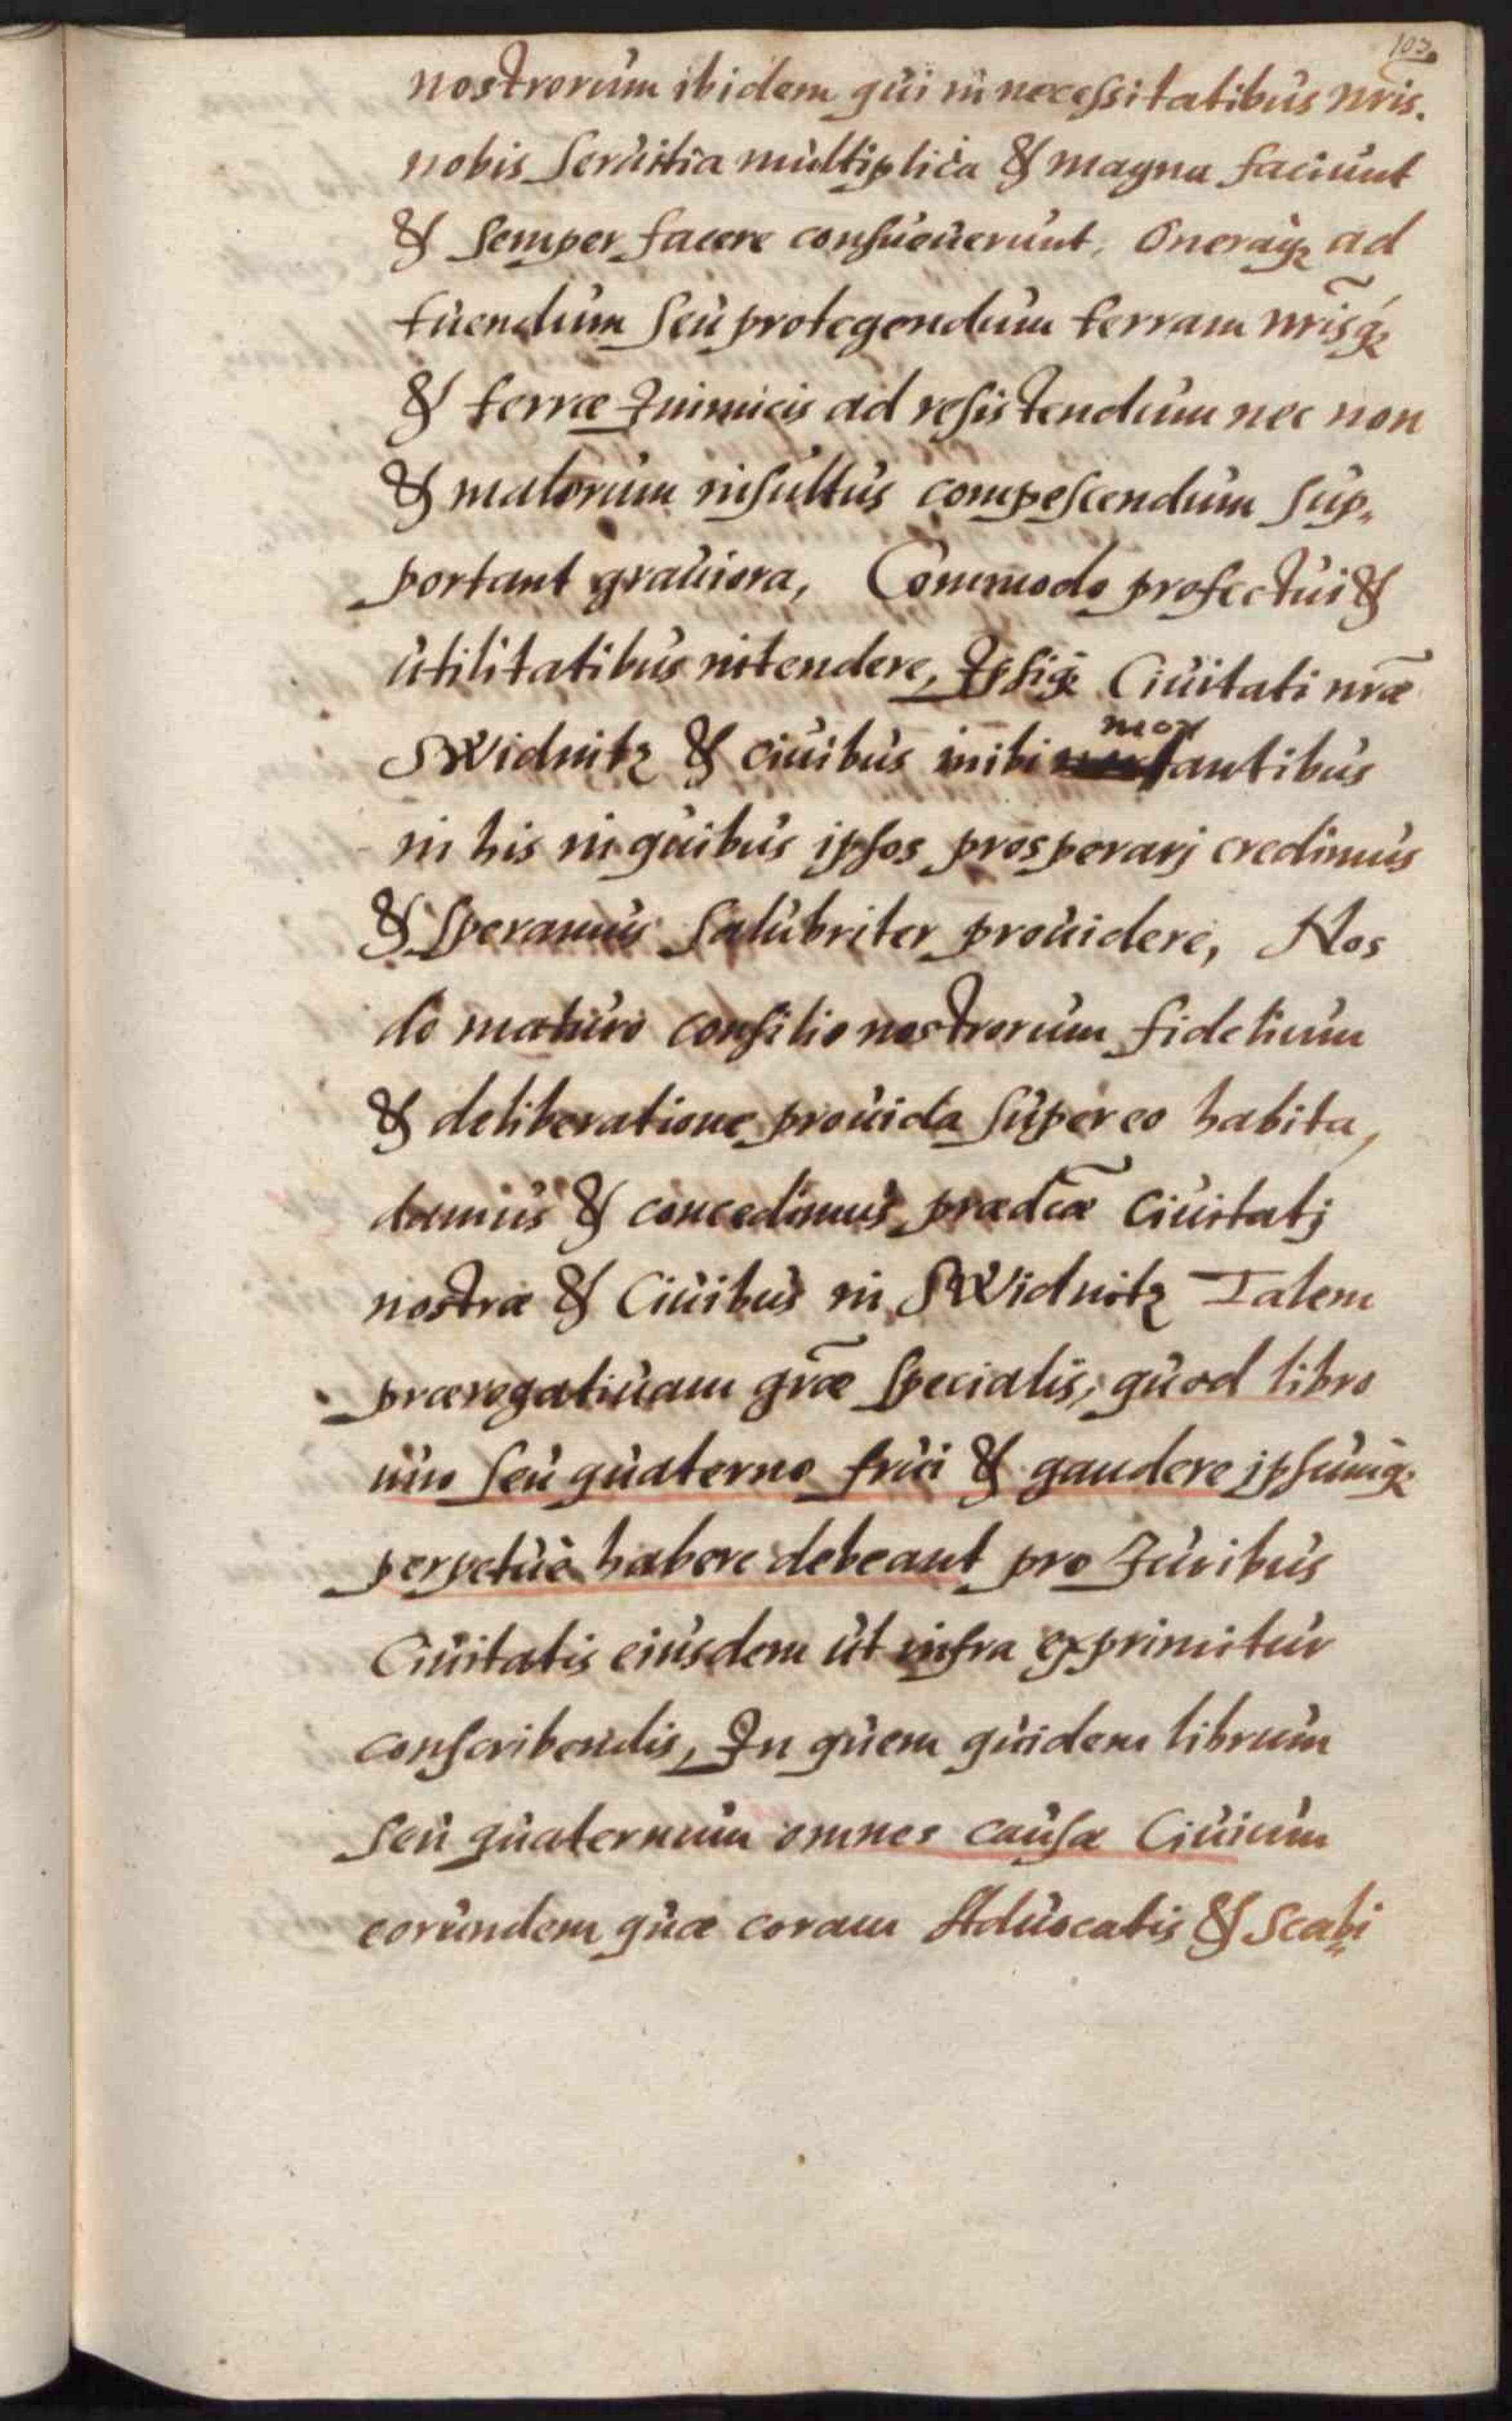 103.
nostrorum ibidem qui in necessitatibus nr̃is.
nobis Seruitia multiplica & magna faciunt
& Semper facere consueuerunt, Oneraq₃ ad
tuendum Seu protegendum terram nr̃isq́₃
& terræ Inimicis ad resistendum nec non
& malorum insultus compescendum Sup„
portant grauiora, Commodo profectui &
utilitatibus intendere, Ipsiq₃ Ciuitati nr̃æ
SWidnitz & ciuibus inibi mor
antibus
in his in quibus ipsos prosperarj credimus
& Speramus Salubriter prouidere, Nos
de maturo consilio nostrorum fidelium
& deliberatione prouida Super eo habita,
damus & concedimus prædc̃æ Ciuitatj
nostræ & Ciuibus in SWidnitz Talem
prærogatiuam gr̃æ Specialis, quod libro
uno Seu quaterno frui & gaudere ipsumq₃
perpetuè habere debeant pro Juribus
Ciuitatis eiusdem ut infra exprimitur
conscribendis, In quem quidem librum
Seu quaternum omnes causæ Ciuium
eorundem quæ coram Aduocatis & Scabi„